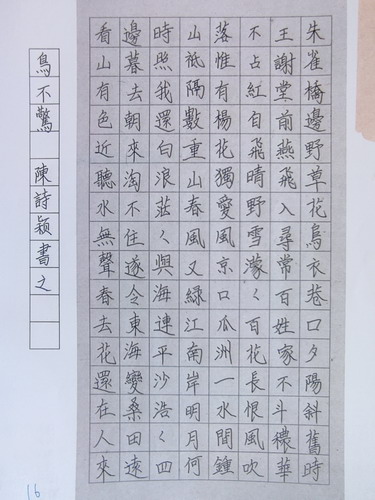 朱雀橋邊野草花烏衣巷口夕陽斜舊時
王謝堂前燕飛入尋常百姓家不斗穠華
不占紅自飛晴野雪濛〱百花長恨風吹
落惟有楊花獨愛風京口瓜洲一水間鍾
山祗隔數重山春風又綠江南岸明月何
時照我還白浪茫〱與海連平沙浩〱四
邊暮去朝來淘不住遂令東海變桑田遠
看山有色近聽水無聲春去花還在人來
鳥不驚 陳詩颖書之
16